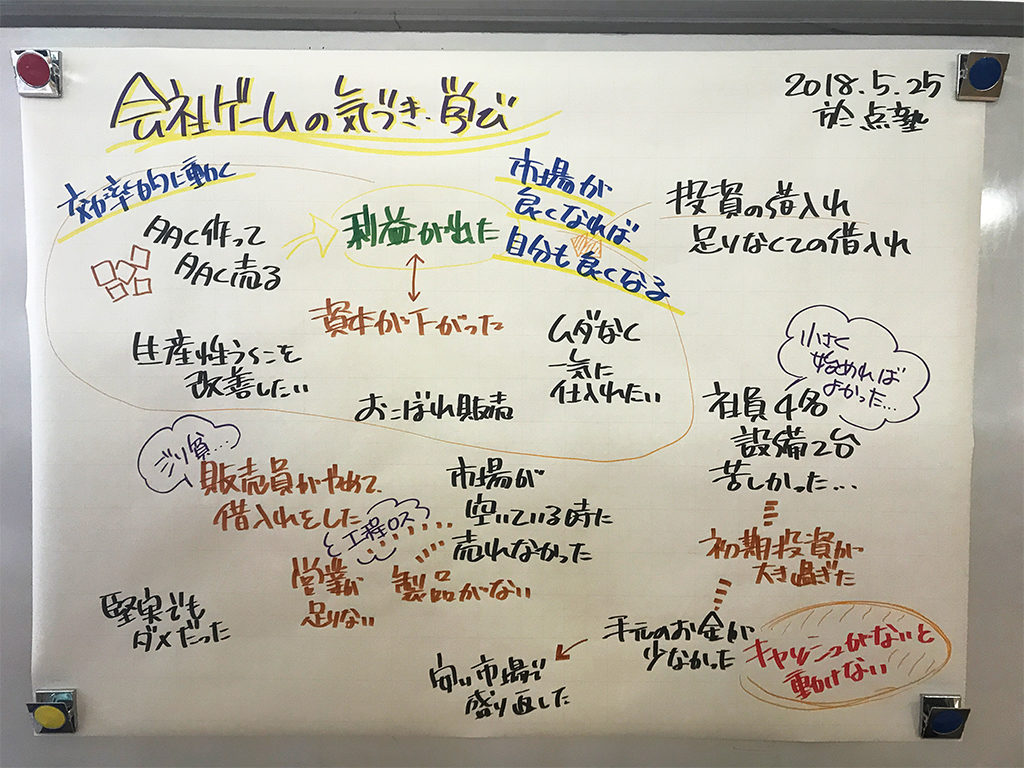 会社ゲームの気づき・学び
2018.5.25
於：点塾
効率的に動く
多く作って
多く売る
利益が出た
市場が
良くなれば
自分も良くなる
投資の借入れ
足りなくての借入れ
資本が下がった
生産性ウンヌンを
改善したい
おこぼれ販売
ムダなく
一気に
仕入れたい
小さく
始めれば
よかった…
社員4名
設備2台
苦しかった…
ジリ貧…
販売員がやめて
借入れをした
市場が
空いている時に
売れなかった
工程ロス
営業が
足りない
製品がない
初期投資が
大き過ぎた
堅実でも
ダメだった
手元のお金が
少なかった
安い市場で
盛り返した
キャッシュがないと
動けない